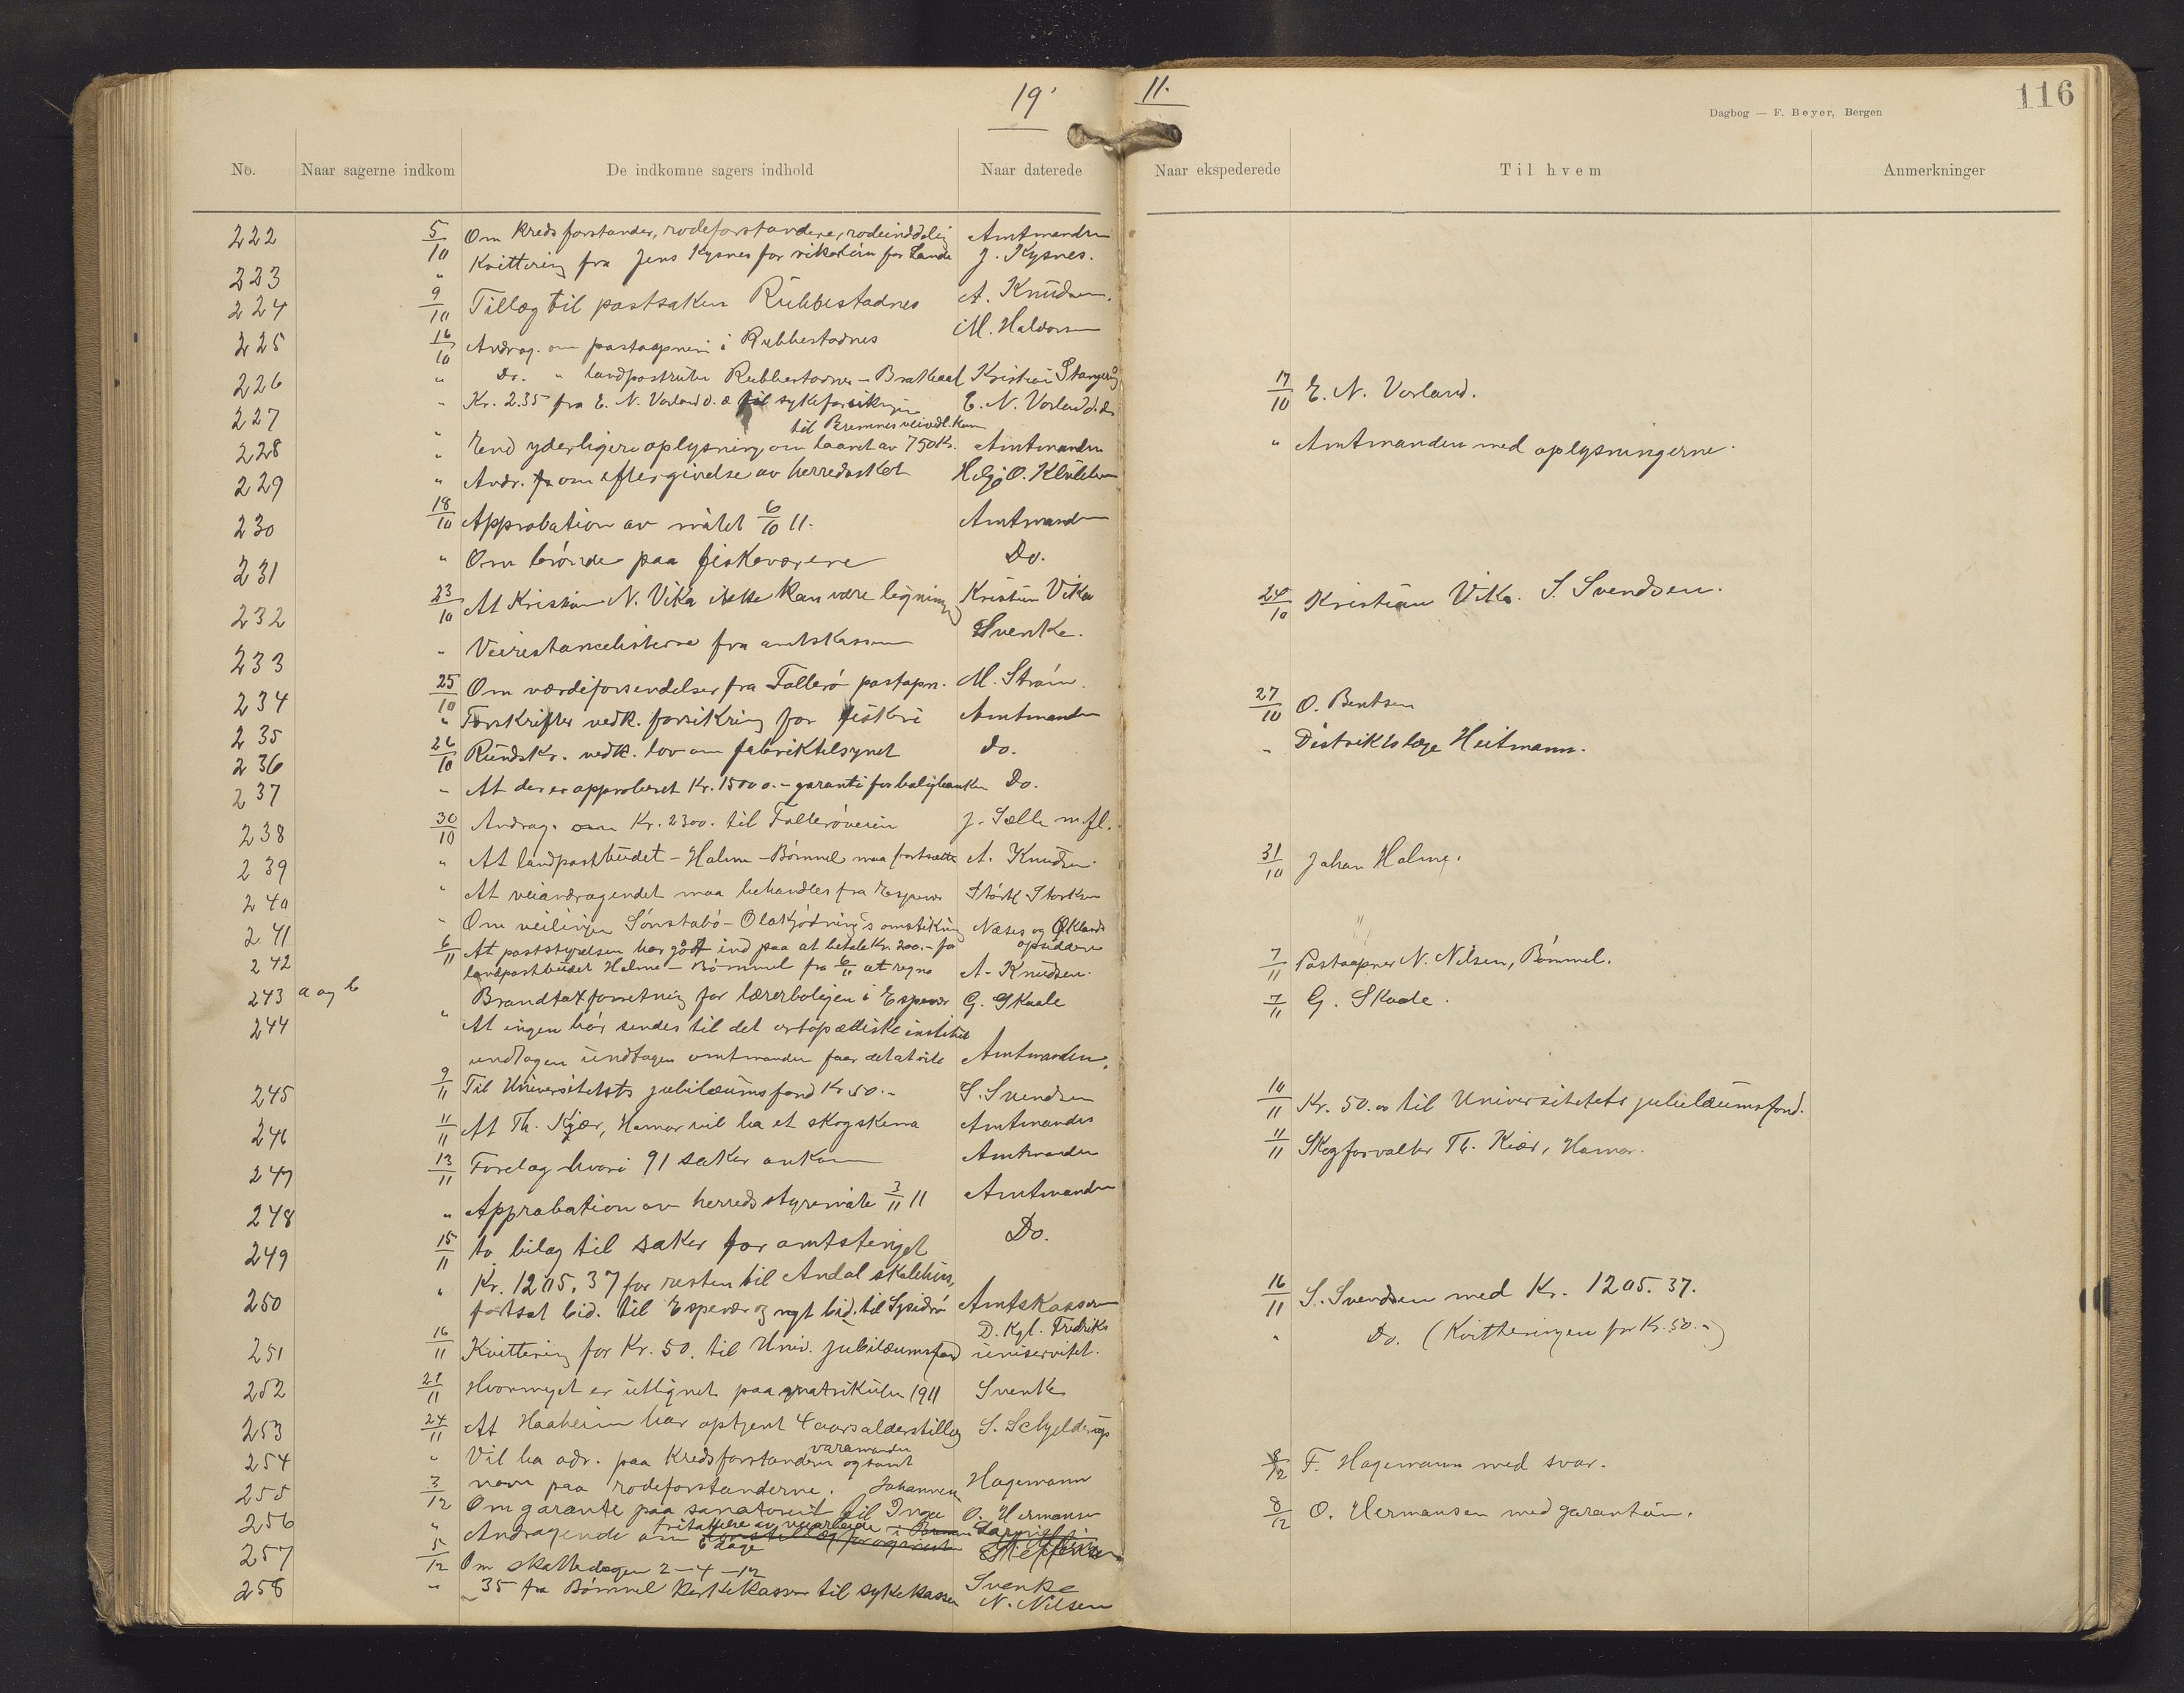 19'
11.
116
Dagbog — F. Beyer, Bergen
No. Naar sagerne indkom De indkomne sagers indhold Naar daterede Naar ekspederede Til hvem Anmerkninger
222 5/10 Om kredsforstander, rodeforstandere, rodeinddelig Amtmanden
223 " Kvittering fra Jens Kysnes for for Lande J. Kysnes.
224 9/10 Tillæg til postsaken Rubbestadnes A. Knudsen.
225 16/10 Andrag. om postaapneri i Rubbestadnes M. Haldorsen
226 " Do. " landpostruten Rubbestadnes - Brekaal Kristian Stangeng
227 " Kr. 2.35 fra E. N. Vorland o. a til sykeforsikringen E. N. Vorland d.d. 17/10 E. N. Vorland.
til Bremnes veivedl. kom
228 " End yderligere oplysning om laanet av 750 Kr. Amtmanden " Amtmanden med oplysningerne.
229 " Andr. om eftergivelse av herredsskat Helje O.
230 18/10 Approbation av møtet 6/10 11. Amtmanden
231 " Om brønde paa fiskeværene Do.
232 23/10 At Kristian N. Vika ikke kan være ligningsm Kristian Vika 24/10 Kristian Vika. S. Svendsen.
233 " Veirestancelisterne fra amtskassen Svenke.
234 25/10 Om værdiforsendelser fra Follerø postapn. M. Strøm. 27/10 O. Bentsen
235 " Forskrifter vedk. forsikring for fiskeri Amtmanden
236 26/10 Rundskr. vedk. lov om fabriktilsynet do. " Distriktslæge Heitmann.
237 " At der er approberet Kr. 15000.- garanti for boligbanken Do.
238 30/10 Andrag. om Kr. 2300. til Follerøveien J. Sælle m. fl.
239 " At landpostbudet - Holme - Bømmel maa fortsætte A. Knudsen. 31/10 Johan Holme.
240 " At veiandragendet maa behandles fra Espevær Størk Storksen
241 " Om veilinjen Sønstabø - Olakjødning's omstikning Næses og Øklands
opsiddere
242 6/11 At poststyrelsen har gåt ind paa at betale Kr. 200.- for
landpostbudet Holme - Bømmel fra 6/11 at regne A. Knudsen. 7/11 Postaapner N. Nilsen, Bømmel.
243 a og b " Brandtakstforretning for lærerboligen i Espevær G. Skaale 7/11 G. Skaale.
244 At ingen bør sendes til det ortopædiske institut
undtagen undtagen amtmanden faar det at vite Amtmanden.
245 9/11 Til Universitetets jubilæumsfond Kr. 50.- S. Svendsen 10/11 Kr. 50.00 til Universitetets jubilæumsfond.
246 11/11 At Th. Kjær, Hamar vil ha et skogskema Amtmanden 11/11 Skogforvalter Th. Kiær, Hamar.
247 13/11 Forelag hvori 91 saker ankom Amtmanden
248 " Approbation av herredsstyremøte 3/11 11 Amtmanden
249 15/11 to bilag til saker for amtstinget Do.
250 " Kr. 1205.37 for resten til Andal skolehus,
fortsat bid. til Espevær og nyt bid. til Lysidrø Amtskassen 16/11 S. Svendsen med Kr. 1205.37.
D. Kgl. Fredriks
251 16/11 Kvittering for Kr. 50. til Univ. jubilæumsfond uniservitet. " Do. (Kvitteringen for Kr. 50.-)
252 21/11 Hvormeget er utlignet paa matrikulen 1911 Svenke
253 24/11 At Haaheim har optjent 4 aars alderstillæg S. Schjelderup
254 " Vil ha adr. paa Kredsforstanderen varamanden og samt
navn paa rodeforstanderne. Hagemann 8/12 F. Hagemann med svar.
255 3/12 Om garante paa sanatoriet til Inga Johannesen O. Hermansen 8/12 O. Hermansen med garantien.
256 " Andragende om fritakelse av veiarbeide
6 dage
257 5/12 Om skattedagen 2-4-12 Svenke
258 " 35 fra Bømmel kerkekassen til sykekassen N. Nilsen